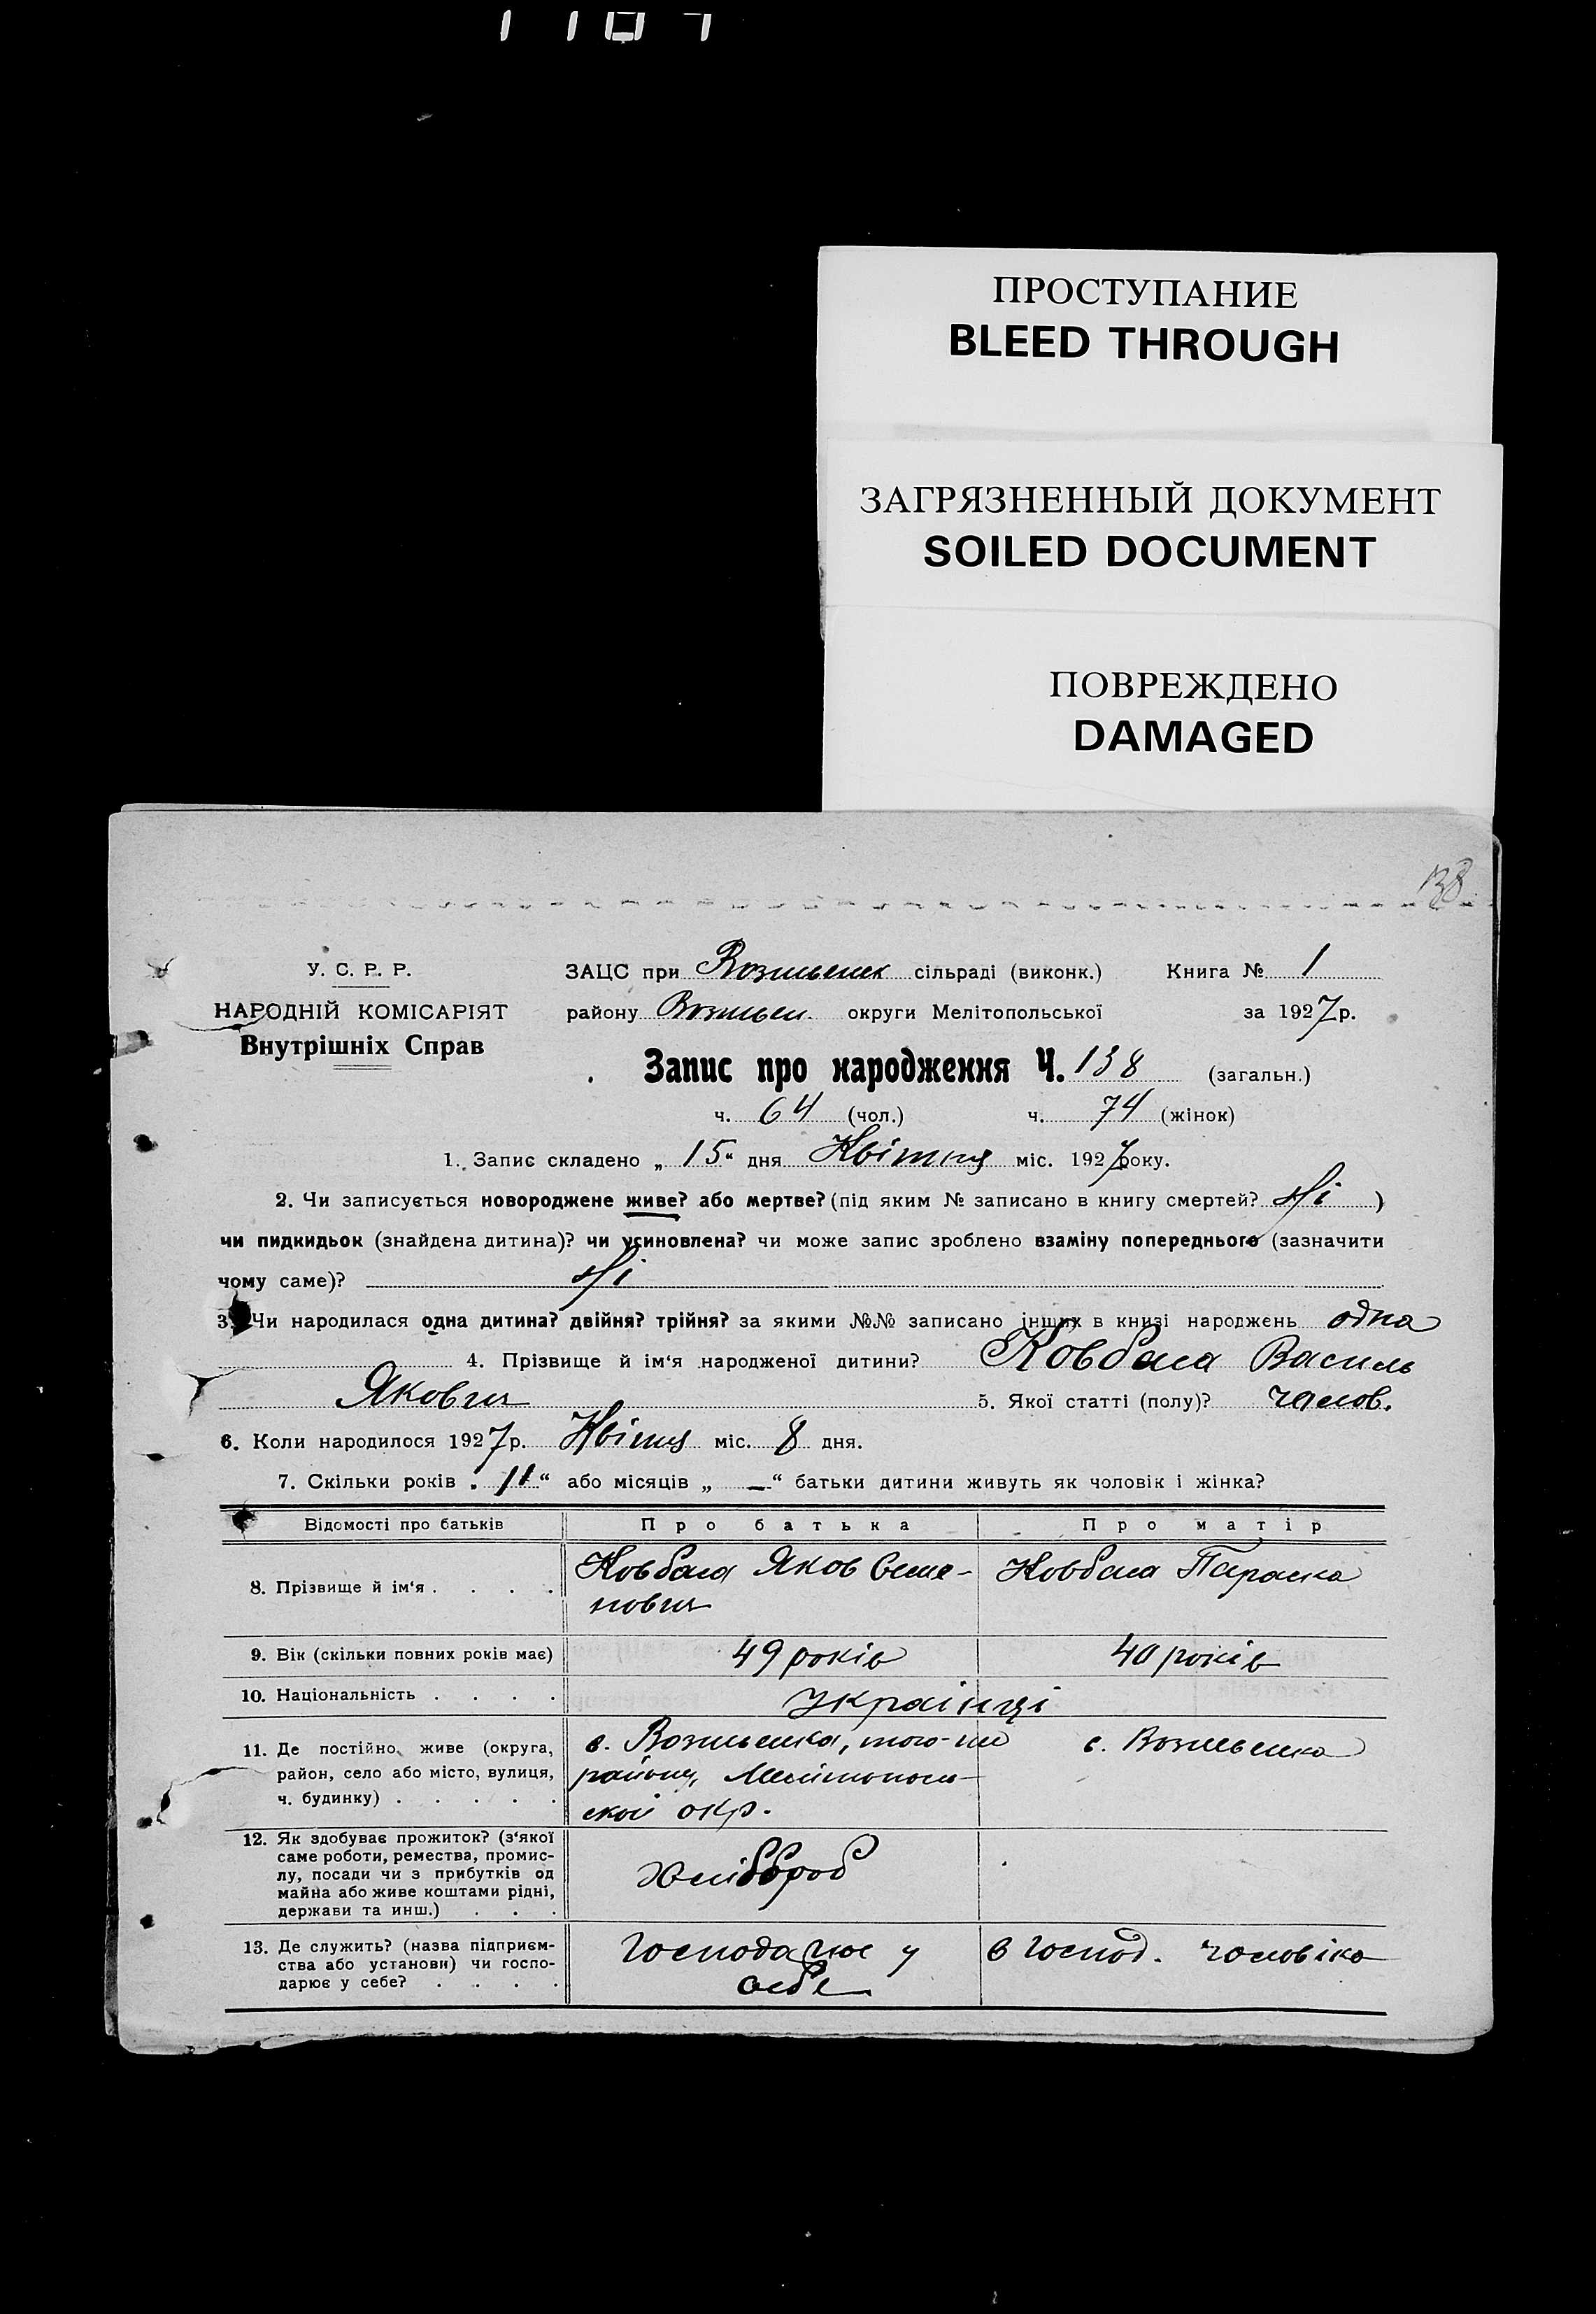 ПРОСТУПАНИЕ
BLEED THROUGH
ЗАГРЯЗНЕННЫЙ ДОКУМЕНТ
SOILED DOCUMENT
ПОВРЕЖДЕНО
DAMAGED
138
У. С. Р. Р.
НАРОДНІЙ КОМІСАРІЯТ
Внутрішніх Справ
ЗАЦС при сільраді (виконк.) Книга № 1
району округи Мелітопольської за 1927 р.
Запис про народження Ч. 138 (загальн.)
ч. 64 (чол.) ч. 74 (жінок)
1. Запис складено „ 15 “ дня Квітня міс. 1927 року.
2. Чи записується новороджене живе? або мертве? (під яким № записано в книгу смертей? Ні )
чи пидкидьок (знайдена дитина)? чи усиновлена? чи може запис зроблено взаміну попереднього (зазначити
чому саме)? Ні
3. Чи народилася одна дитина? двійня? трійня? за якими №№ записано інших в книзі народжень одна
4. Прізвище й ім‘я народженої дитини? Ковбаса Василь
Якович 5. Якої статті (полу)? чолов.
6. Коли народилося 1927 р. Квітня міс. 8 дня.
7. Скільки років „ 11 “ або місяців „ — “ батьки дитини живуть як чоловік і жінка?
Відомості про батьків Про батька Про матір
8. Прізвище й ім‘я . . . . Ковбаса Яков Семе- Ковбаса Параска
нович
9. Вік (скільки повних років має) 49 років 40 років
10. Національність . . . . Українці
11. Де постійно живе (округа,
район, село або місто, вулиця,
ч. будинку) . . . . .
с. Вознесенка, того-ж
району, Мелітополь-
ской окр.
с. Вознесенка
12. Як здобуває прожиток? (з‘якої
саме роботи, ремества, промис-
лу, посади чи з прибутків од
майна або живе коштами рідні,
держави та инш.) . . .
Хлібороб
13. Де служить? (назва підприєм-
ства або установи) чи госпо-
дарює у себе? . . . .
Господарює у
себе
в господ. чоловіка